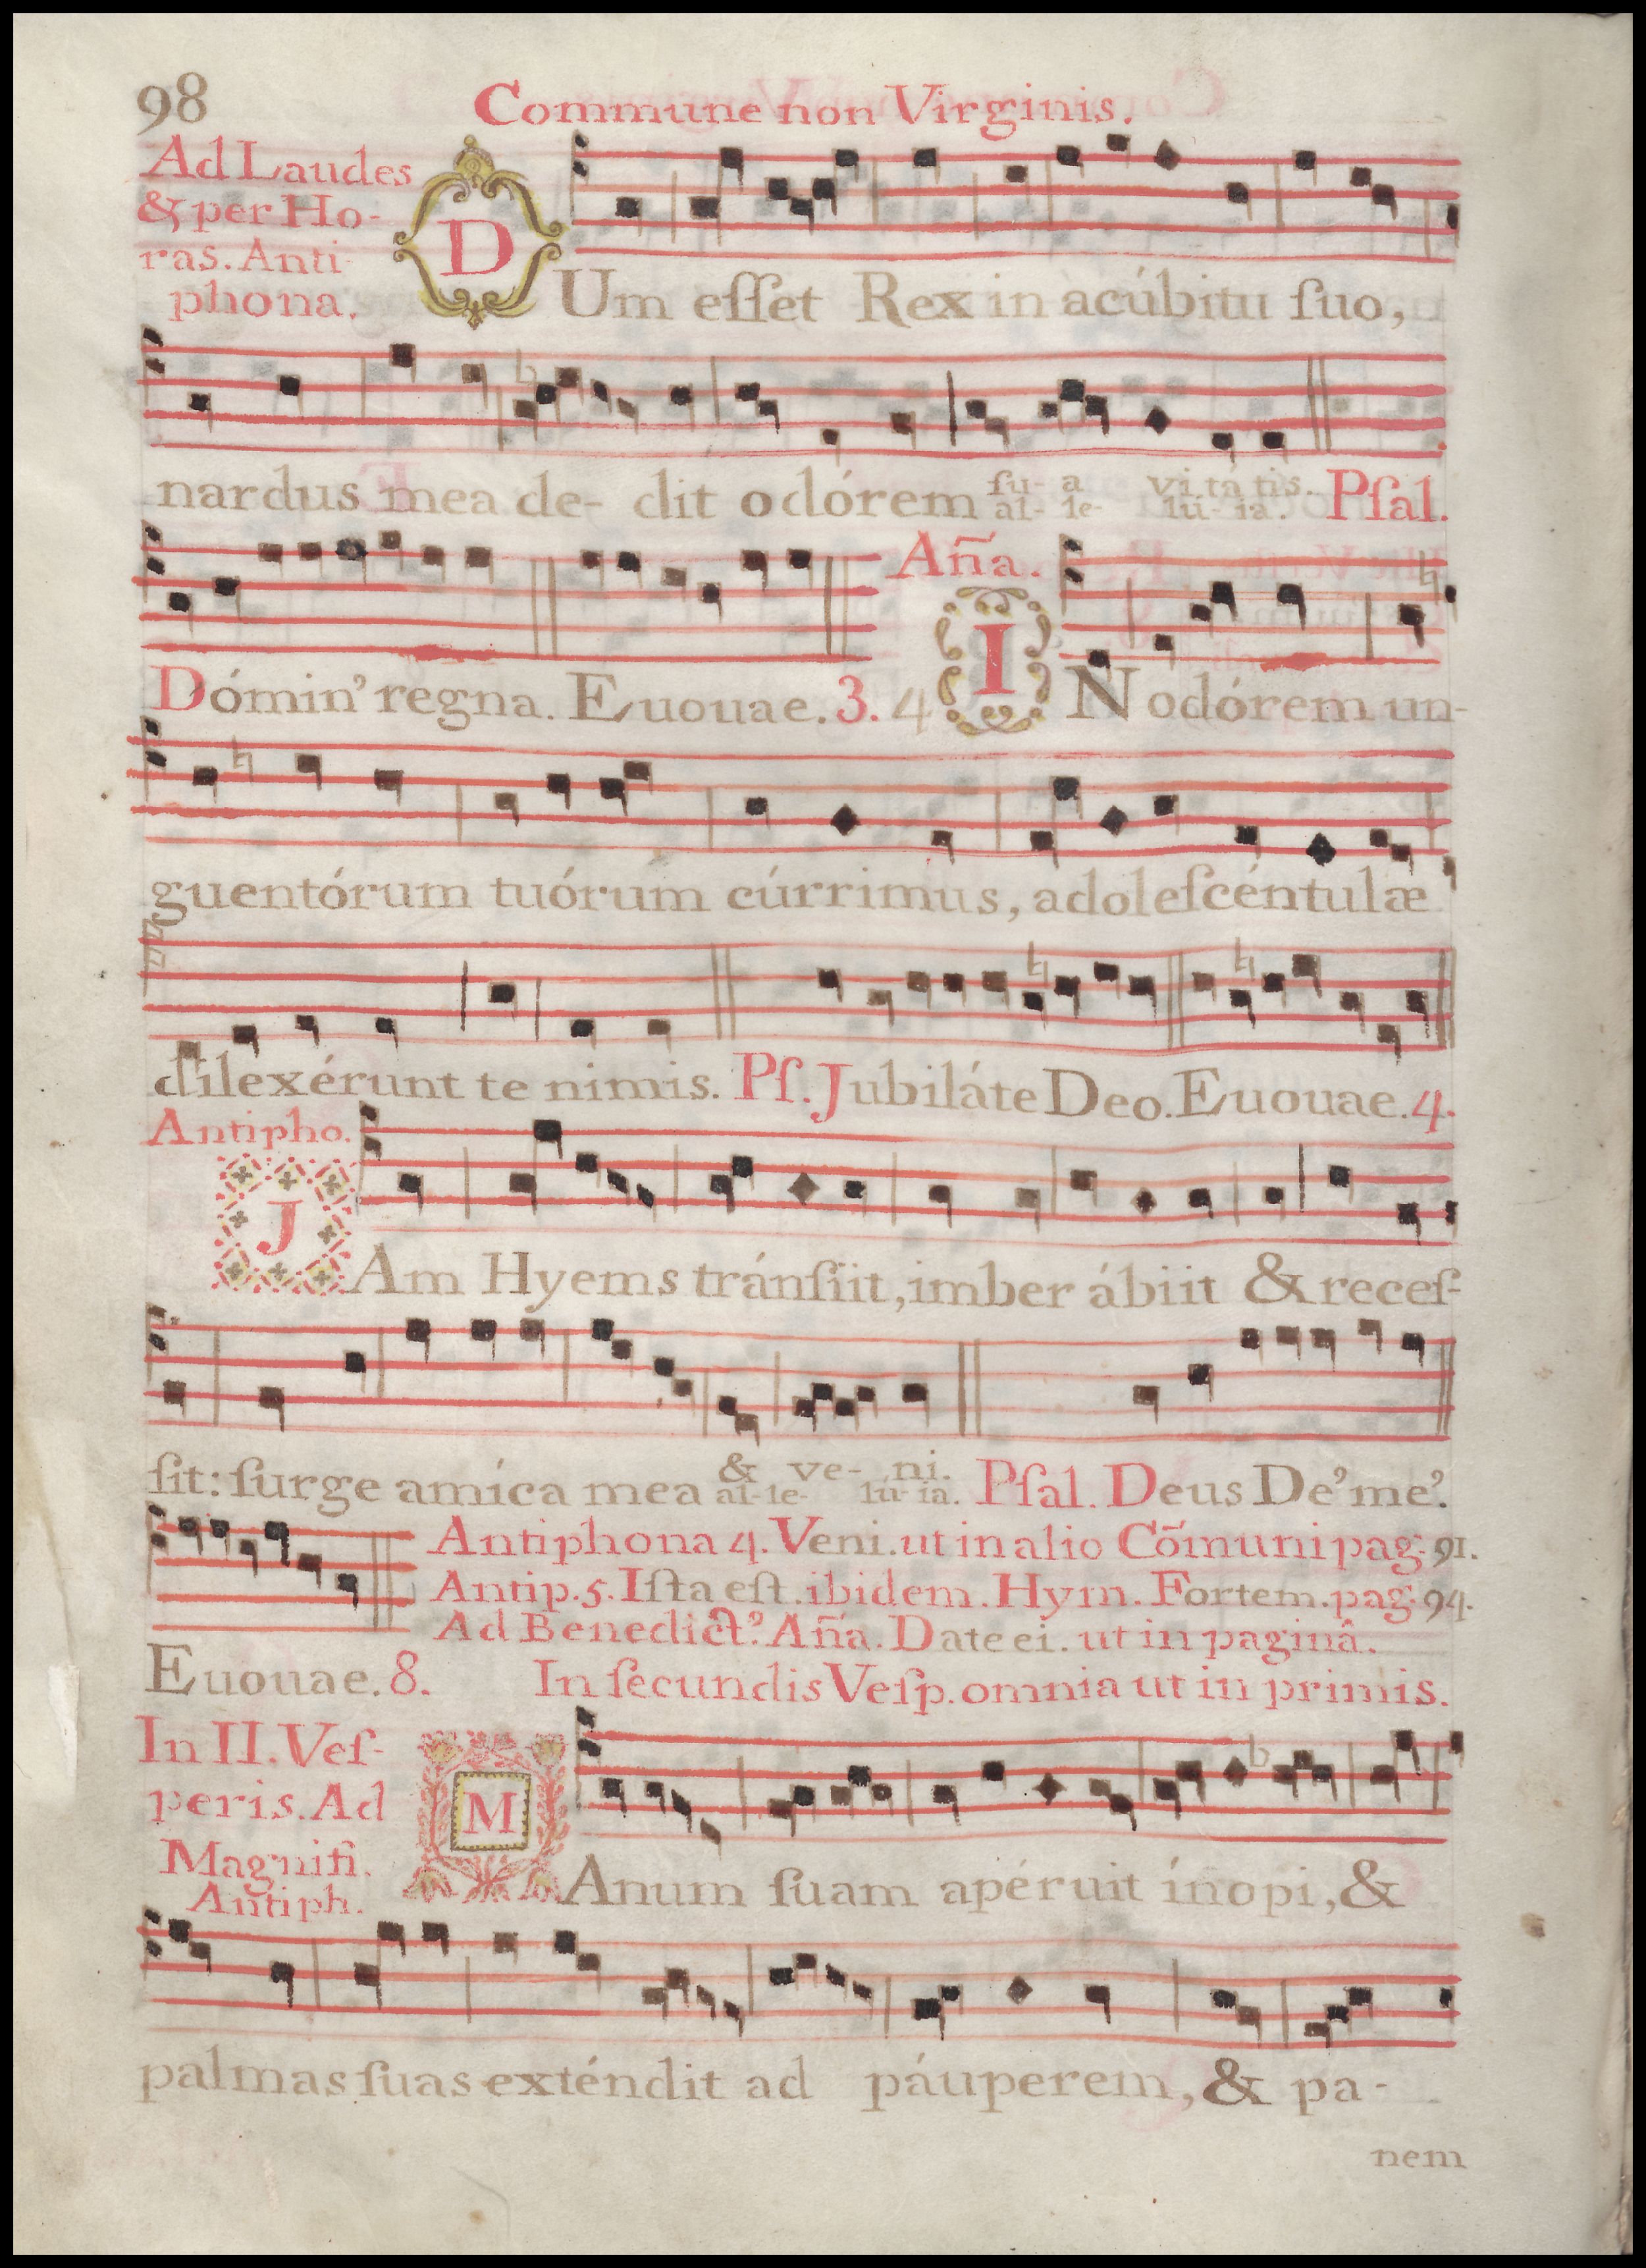 98
Commune non Virginis.
Ad Laudes
& per Ho-
ras. Anti-
phona.
DUm eſſet Rex in acúbitu ſuo,
nardus mea de- dit odórem ſu- a vi tá tis. Pſal.
al- le- lú- ia.
Aña.
Dómin’ regna. Euouae. 3. 4 IN odórem un-
guentórum tuórum cúrrimus, adoleſcéntulæ
dilexérunt te nimis. Pſ. Jubiláte Deo. Euouae. 4.
Antipho.
JAm Hyems tránſiit, imber ábiit & receſ-
ſit: ſurge amíca mea & ve- ni. Pſal. Deus De’ me’.
al- le- lú- ia.
Antiphona 4. Veni. ut in alio Cõmuni pag. 91.
Antip. 5. Iſta eſt. ibidem. Hym. Fortem. pag. 94.
Ad Benedict.’ Aña. Date ei. ut in paginâ.
Euouae. 8. In ſecundis Veſp. omnia ut in primis.
In II. Veſ-
peris. Ad
Magnifi.
Antiph.
MAnum ſuam apéruit ínopi, &
palmas ſuas exténdit ad páuperem, & pa-
nem